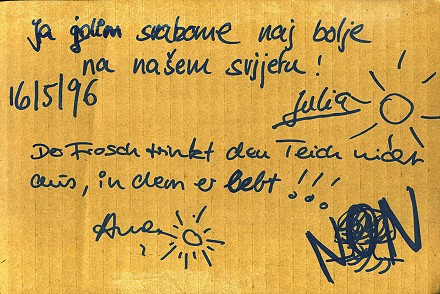 Ja golim svabome naj bolje
na našem svijetu!
16/5/96
Julia
Der Frosch trinkt den Teich nicht
aus, in dem er lebt!!!
Ana
NON